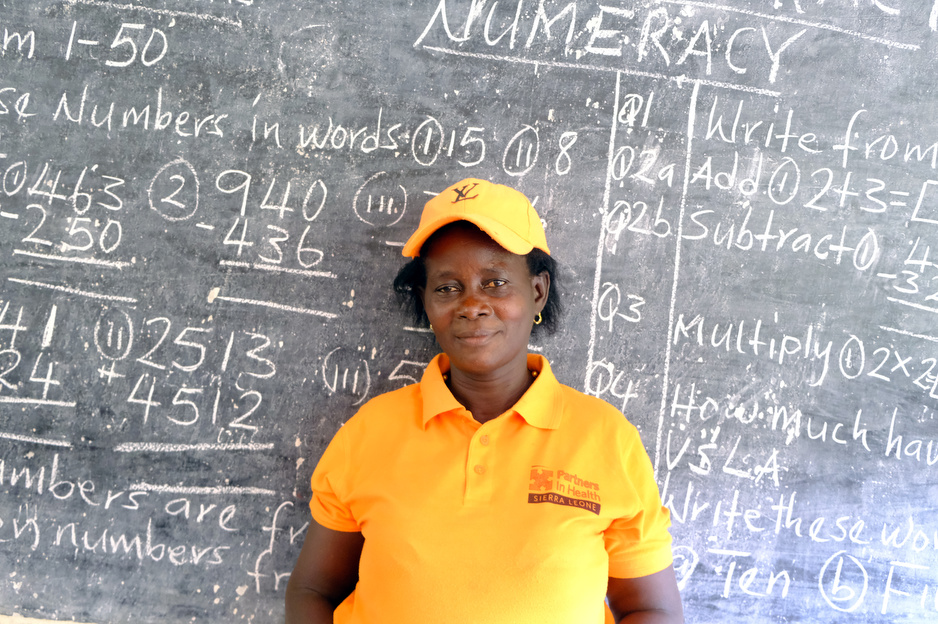 NUMERACY
1-50
Numbers in words (i) 15 (ii) 8
463
-250
(2) 940
-436
(iii)
(ii) 2513
+4512
(iii) 5
24
numbers are
numbers
Q1 Write from
Q2a Add (i) 2+3=
Q2b Subtract (i)
Q3 Multiply (i) 2×2
Q4 How much
VSLA
Write these
Ten (b)
LV
Partners
In Health
SIERRA LEONE